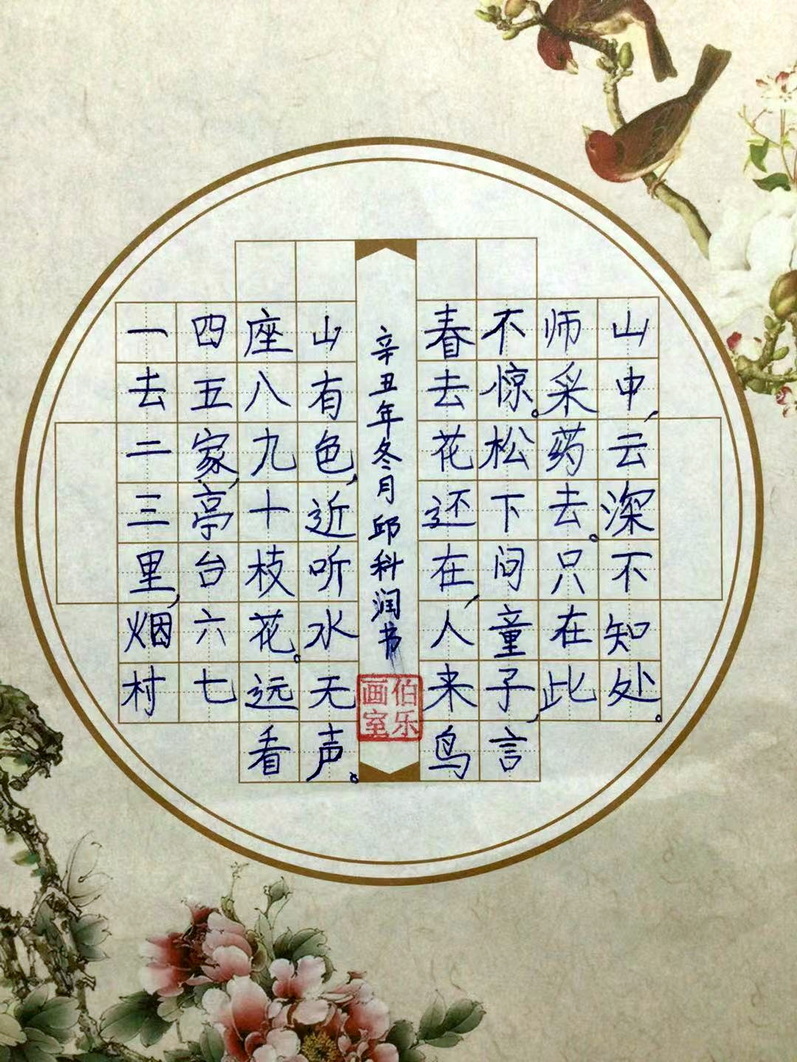 一去二三里,烟村
四五家,亭台六七
座八九十枝花。远看
山有色,近听水无声。
辛丑年冬月邱科润书
伯乐画室
春去花还在,人来鸟
不惊。松下问童子,言
师采药去。只在此
山中,云深不知处。